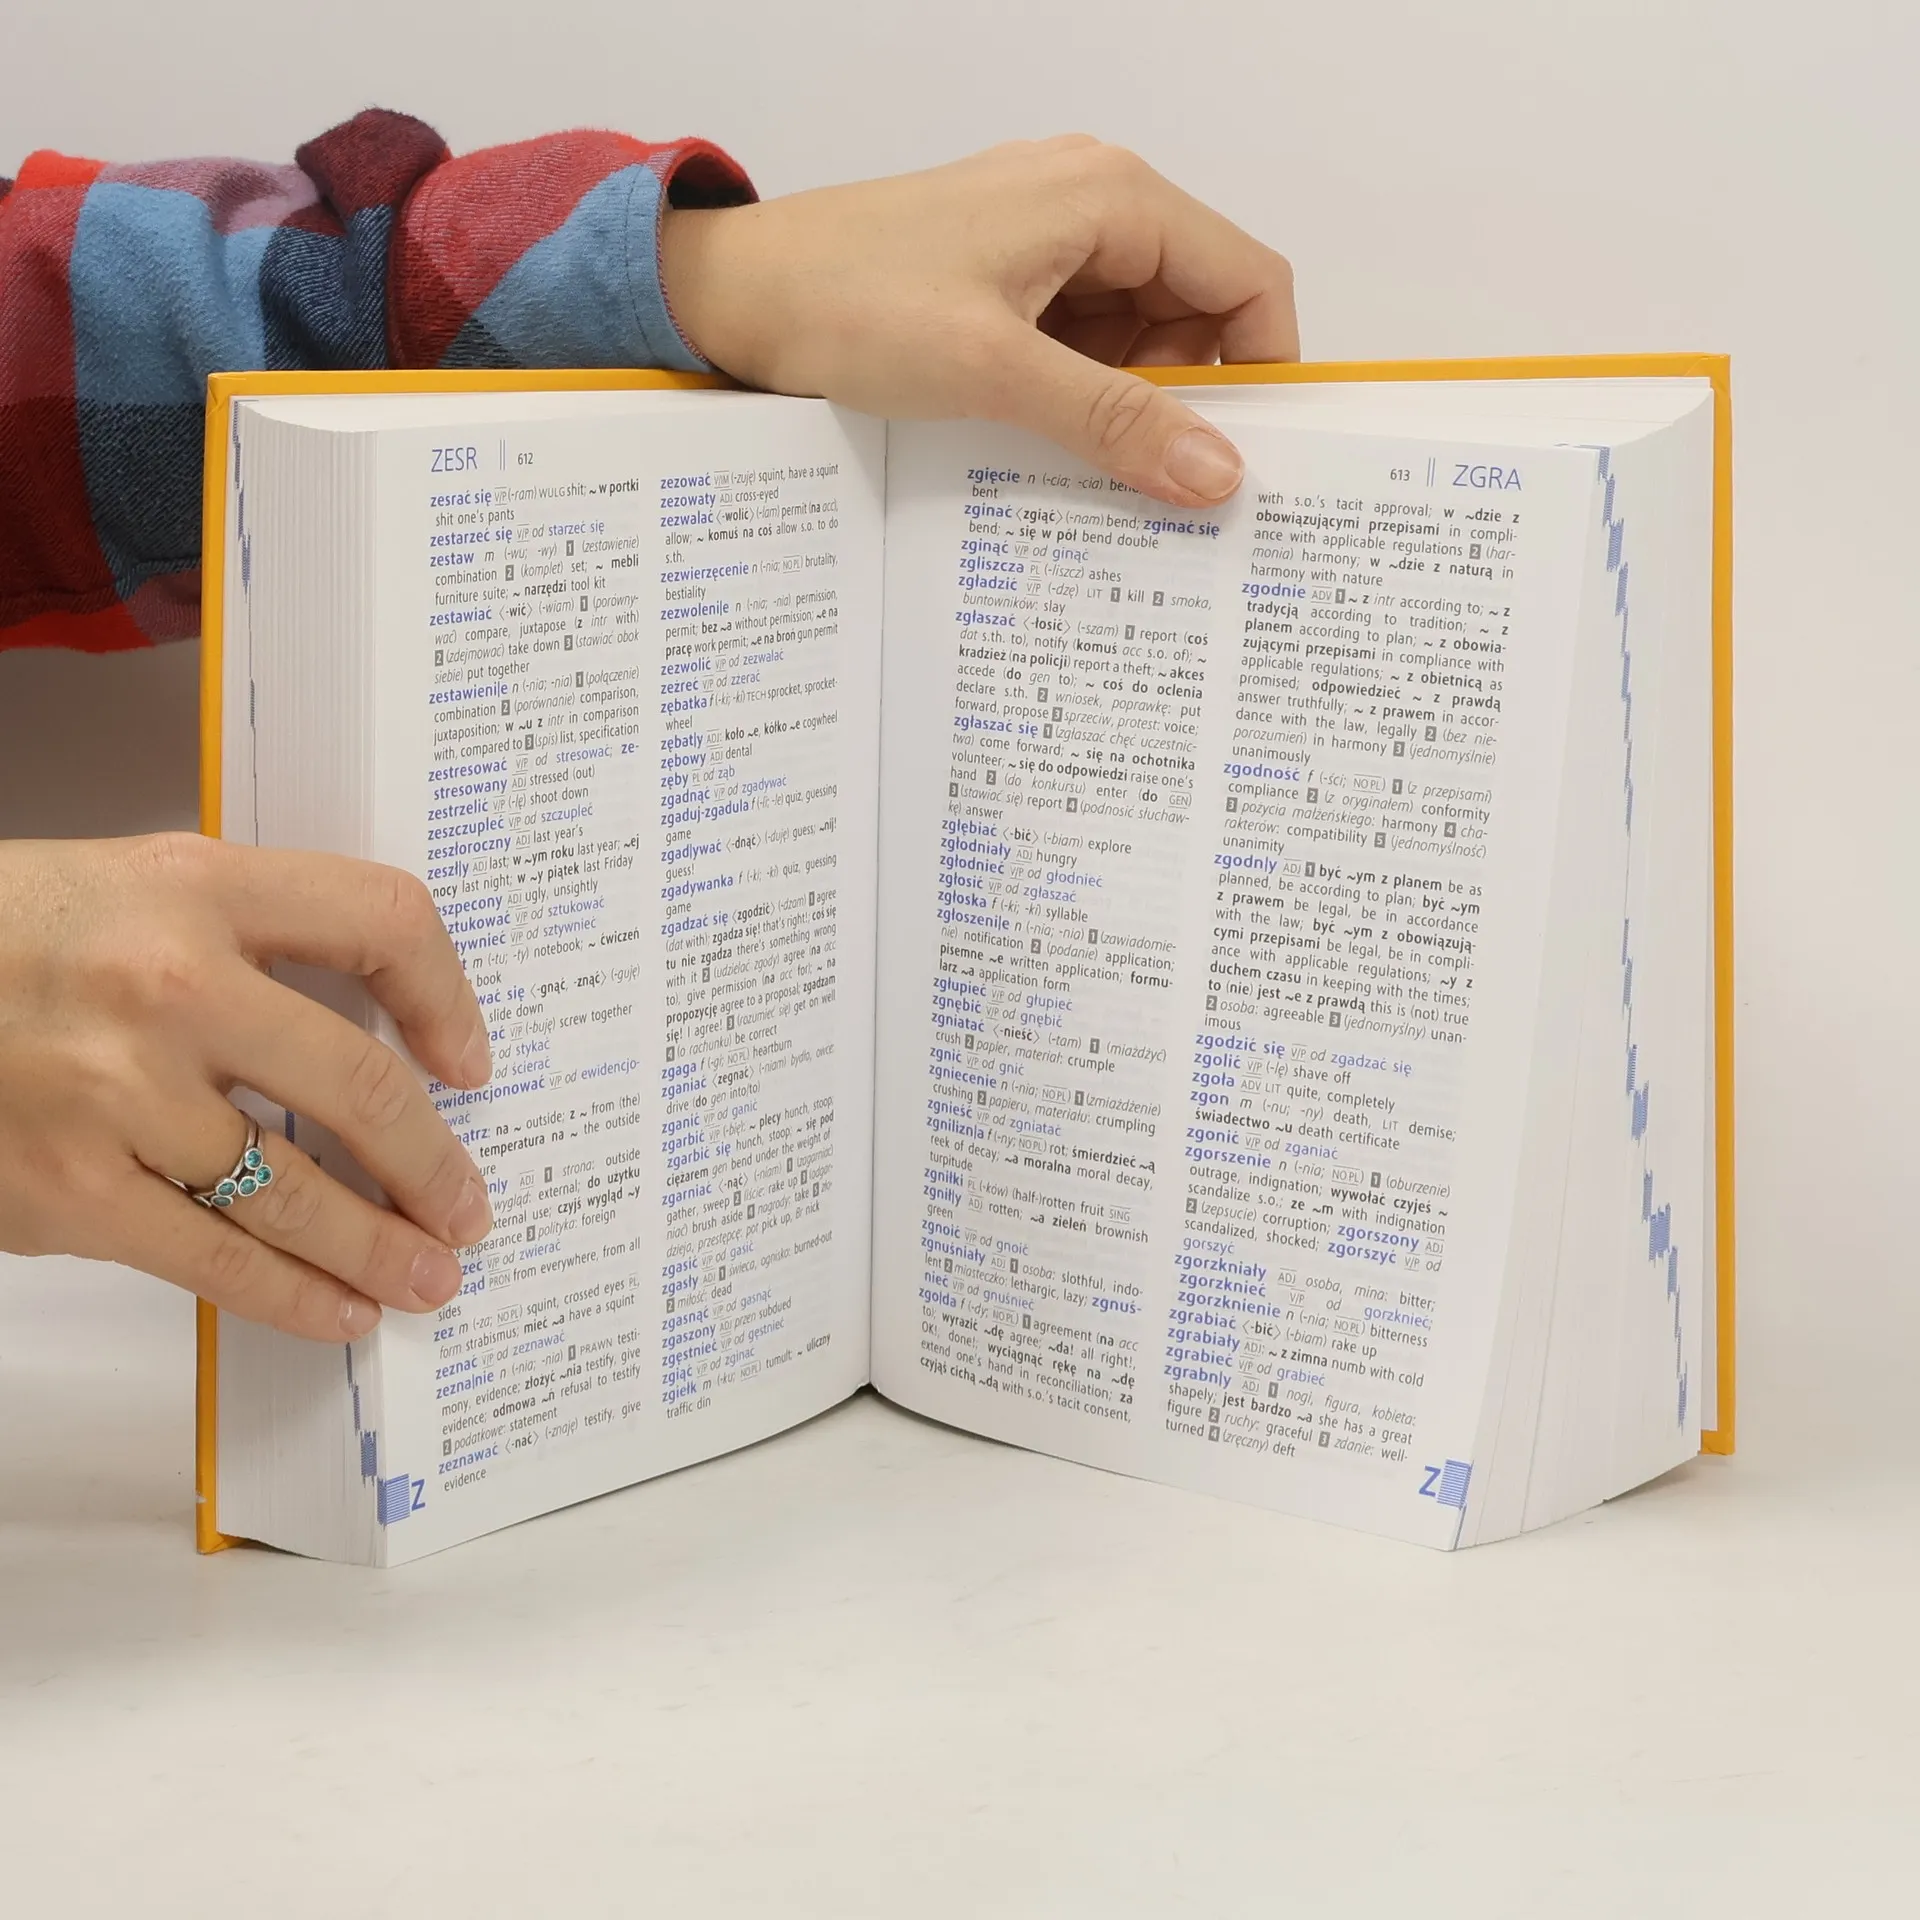 ZESR 612
zesrać się V/P (-ram) WULG shit; ~ w portki
shit one's pants
zestarzeć się V/P od starzeć się
zestaw m (-wu; -wy) 1 (zestawienie)
combination 2 (komplet) set; ~ mebli
furniture suite; ~ narzędzi tool kit
zestawiać ⟨-wić⟩ (-wiam) 1 (porówny-
wać) compare, juxtapose (z intr with)
2 (zdejmować) take down 3 (stawiać obok
siebie) put together
zestawieni|e n (-nia; -nia) 1 (połączenie)
combination 2 (porównanie) comparison,
juxtaposition; w ~u z intr in comparison
with, compared to 3 (spis) list, specification
zestresować V/P od stresować; ze-
stresowany ADJ stressed (out)
zestrzelić V/P (-lę) shoot down
zeszczupleć V/P od szczupleć
zeszłoroczny ADJ last year's
zeszł|y ADJ last; w ~ym roku last year; ~ej
nocy last night; w ~y piątek last Friday
eszpecony ADJ ugly, unsightly
sztukować V/P od sztukować
tywnieć V/P od sztywnieć
t m (-tu; -ty) notebook; ~ ćwiczeń
book
wać się ⟨-gnąć, -znąć⟩ (-guję)
slide down
ać V/P (-buję) screw together
od stykać
od ścierać
ewidencjonować V/P od ewidencjo-
wać
ątrz: na ~ outside; z ~ from (the)
temperatura na ~ the outside
ure
n|y ADJ 1 strona: outside
wygląd: external; do użytku
xternal use; czyjś wygląd ~y
appearance 3 polityka: foreign
zeć V/P od zwierać
sząd PRON from everywhere, from all
sides
zez m (-za; NO PL) squint, crossed eyes PL,
form strabismus; mieć ~a have a squint
zeznać V/P od zeznawać
zezna|nie n (-nia; -nia) 1 PRAWN testi-
mony, evidence; złożyć ~nia testify, give
evidence; odmowa ~ń refusal to testify
2 podatkowe: statement
zeznawać ⟨-nać⟩ (-znaję) testify, give
evidence
Z
zezować V/IM (-zuję) squint, have a squint
zezowaty ADJ cross-eyed
zezwalać ⟨-wolić⟩ (-lam) permit (na acc),
allow; ~ komuś na coś allow s.o. to do
s.th.
zezwierzęcenie n (-nia; NO PL) brutality,
bestiality
zezwoleni|e n (-nia; -nia) permission,
permit; bez ~a without permission; ~e na
pracę work permit; ~e na broń gun permit
zezwolić V/P od zezwalać
zeżreć V/P od zżerać
zębatka f (-ki; -ki) TECH sprocket, sprocket-
wheel
zębat|y ADJ: koło ~e, kółko ~e cogwheel
zębowy ADJ dental
zęby PL od ząb
zgadnąć V/P od zgadywać
zgaduj-zgadula f (-li; -le) quiz, guessing
game
zgad|ywać ⟨-dnąć⟩ (-duję) guess; ~nij!
guess!
zgadywanka f (-ki; -ki) quiz, guessing
game
zgadzać się ⟨zgodzić⟩ (-dzam) 1 agree
(dat with); zgadza się! that's right!; coś się
tu nie zgadza there's something wrong
with it 2 (udzielać zgody) agree (na acc
to), give permission (na acc for); ~ na
propozycję agree to a proposal; zgadzam
się! I agree! 3 (rozumieć się) get on well
4 (o rachunku) be correct
zgaga f (-gi; NO PL) heartburn
zganiać ⟨zegnać⟩ (-niam) bydło, owce:
drive (do gen into/to)
zganić V/P od ganić
zgarbić V/P (-bię): ~ plecy hunch, stoop;
zgarbić się hunch, stoop; ~ się pod
ciężarem gen bend under the weight of
zgarniać ⟨-nąć⟩ (-niam) 1 (zagarniać)
gather, sweep 2 liście: rake up 3 (odgar-
niać) brush aside 4 nagrody: take 5 zło-
dzieja, przestępcę: pot pick up, Br nick
zgasić V/P od gasić
zgasły ADJ 1 świeca, ognisko: burned-out
2 miłość: dead
zgasnąć V/P od gasnąć
zgaszony ADJ przen subdued
zgęstnieć V/P od gęstnieć
zgiąć V/P od zginać
zgiełk m (-ku; NO PL) tumult; ~ uliczny
traffic din
613 ZGRA
zgięcie n (-cia; -cia)
bent
zginać ⟨zgiąć⟩ (-nam) bend; zginać się
bend; ~ się w pół bend double
zginąć V/P od ginąć
zgliszcza PL (-liszcz) ashes
zgładzić V/P (-dzę) LIT 1 kill 2 smoka,
buntowników: slay
zgłaszać ⟨-łosić⟩ (-szam) 1 report (coś
dat s.th. to), notify (komuś acc s.o. of); ~
kradzież (na policji) report a theft; ~ akces
accede (do gen to); ~ coś do oclenia
declare s.th. 2 wniosek, poprawkę: put
forward, propose 3 sprzeciw, protest: voice;
zgłaszać się 1 (zgłaszać chęć uczestnic-
twa) come forward; ~ się na ochotnika
volunteer; ~ się do odpowiedzi raise one's
hand 2 (do konkursu) enter (do GEN)
3 (stawiać się) report 4 (podnosić słuchaw-
kę) answer
zgłębiać ⟨-bić⟩ (-biam) explore
zgłodniały ADJ hungry
zgłodnieć V/P od głodnieć
zgłosić V/P od zgłaszać
zgłoska f (-ki; -ki) syllable
zgłoszeni|e n (-nia; -nia) 1 (zawiadomie-
nie) notification 2 (podanie) application;
pisemne ~e written application; formu-
larz ~a application form
zgłupieć V/P od głupieć
zgnębić V/P od gnębić
zgniatać ⟨-nieść⟩ (-tam) 1 (miażdżyć)
crush 2 papier, materiał: crumple
zgnić V/P od gnić
zgniecenie n (-nia; NO PL) 1 (zmiażdżenie)
crushing 2 papieru, materiału: crumpling
zgnieść V/P od zgniatać
zgnilizn|a f (-ny; NO PL) rot; śmierdzieć ~ą
reek of decay; ~a moralna moral decay,
turpitude
zgniłki PL (-ków) (half-)rotten fruit SING
zgniły ADJ rotten; ~a zieleń brownish
green
zgnoić V/P od gnoić
zgnuśniały ADJ 1 osoba: slothful, indo-
lent 2 miasteczko: lethargic, lazy; zgnuś-
nieć V/P od gnuśnieć
zgo|da f (-dy; NO PL) 1 agreement (na acc
to); wyrazić ~dę agree; ~da! all right!,
OK!, done!; wyciągnąć rękę na ~dę
extend one's hand in reconciliation; za
czyjąś cichą ~dą with s.o.'s tacit consent,
with s.o.'s tacit approval; w ~dzie z
obowiązującymi przepisami in compli-
ance with applicable regulations 2 (har-
monia) harmony; w ~dzie z naturą in
harmony with nature
zgodnie ADV 1 ~ z intr according to; ~ z
tradycją according to tradition; ~ z
planem according to plan; ~ z obowią-
zującymi przepisami in compliance with
applicable regulations; ~ z obietnicą as
promised; odpowiedzieć ~ z prawdą
answer truthfully; ~ z prawem in accor-
dance with the law, legally 2 (bez nie-
porozumień) in harmony 3 (jednomyślnie)
unanimously
zgodność f (-ści; NO PL) 1 (z przepisami)
compliance 2 (z oryginałem) conformity
3 pożycia małżeńskiego: harmony 4 cha-
rakterów: compatibility 5 (jednomyślność)
unanimity
zgodn|y ADJ 1 być ~ym z planem be as
planned, be according to plan; być ~ym
z prawem be legal, be in accordance
with the law; być ~ym z obowiązują-
cymi przepisami be legal, be in compli-
ance with applicable regulations; ~y z
duchem czasu in keeping with the times;
to (nie) jest ~e z prawdą this is (not) true
2 osoba: agreeable 3 (jednomyślny) unan-
imous
zgodzić się V/P od zgadzać się
zgolić V/P (-lę) shave off
zgoła ADV LIT quite, completely
zgon m (-nu; -ny) death, LIT demise;
świadectwo ~u death certificate
zgonić V/P od zganiać
zgorszenie n (-nia; NO PL) 1 (oburzenie)
outrage, indignation; wywołać czyjeś ~
scandalize s.o.; ze ~m with indignation
2 (zepsucie) corruption; zgorszony ADJ
scandalized, shocked; zgorszyć V/P od
gorszyć
zgorzkniały ADJ osoba, mina: bitter;
zgorzknieć V/P od gorzknieć;
zgorzknienie n (-nia; NO PL) bitterness
zgrabiać ⟨-bić⟩ (-biam) rake up
zgrabiały ADJ: ~ z zimna numb with cold
zgrabieć V/P od grabieć
zgrabn|y ADJ 1 nogi, figura, kobieta:
shapely; jest bardzo ~a she has a great
figure 2 ruchy: graceful 3 zdanie: well-
turned 4 (zręczny) deft
Z